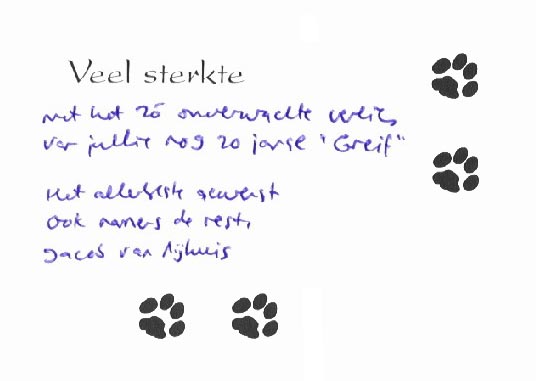 Veel sterkte
met het zó onverwachte verlies
van jullie nog zo jonge "Greif"
Het allerbeste gewenst
Ook namens de rest,
van